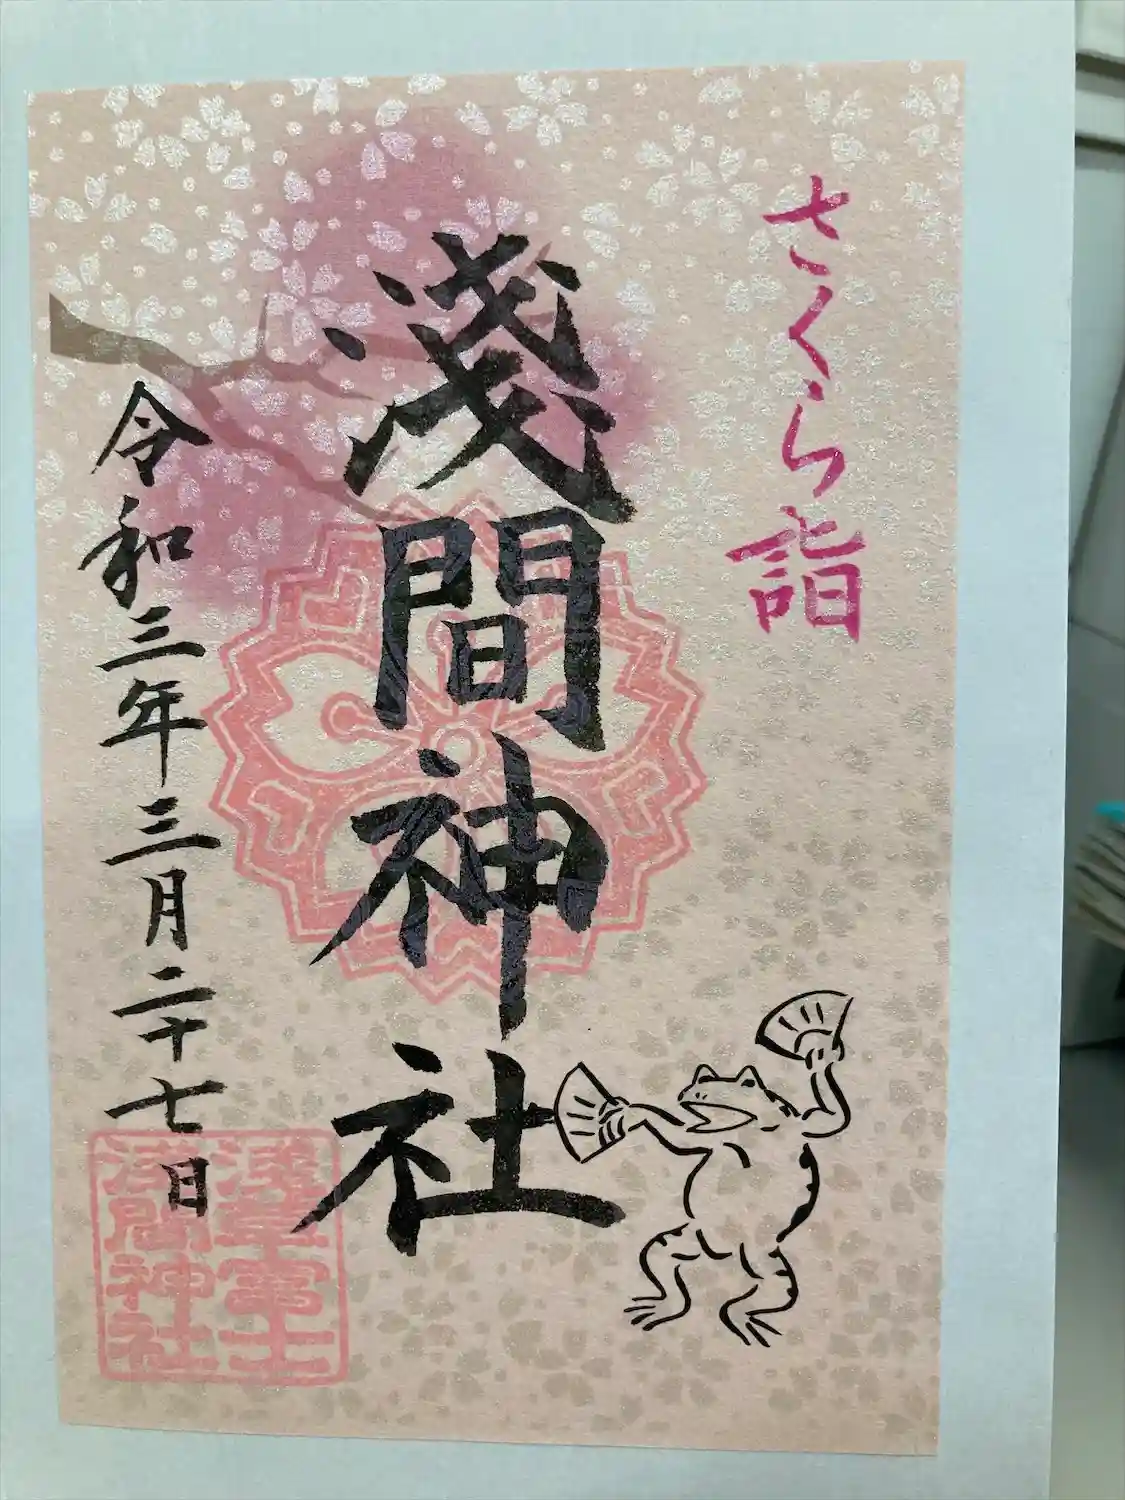 さくら詣
淺間神社
令和三年三月二十七日
淺草富士
淺間神社